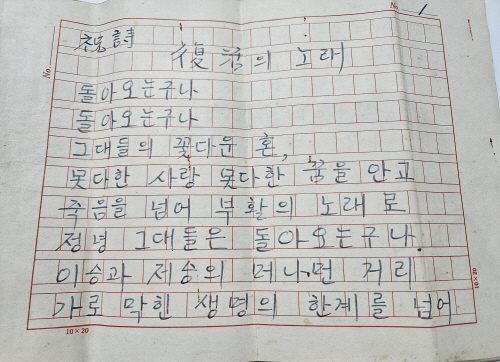 No. 1
祝詩
復活의 노래
돌아오는구나
돌아오는구나
그대들의 꽃다운 혼,
못다한 사랑 못다한 꿈을 안고
죽음을 넘어 부활의 노래로
정녕 그대들은 돌아오는구나.
이승과 저승의 머나먼 거리
가로막힌 생명의 한계를 넘어
No.
10×20
10×20